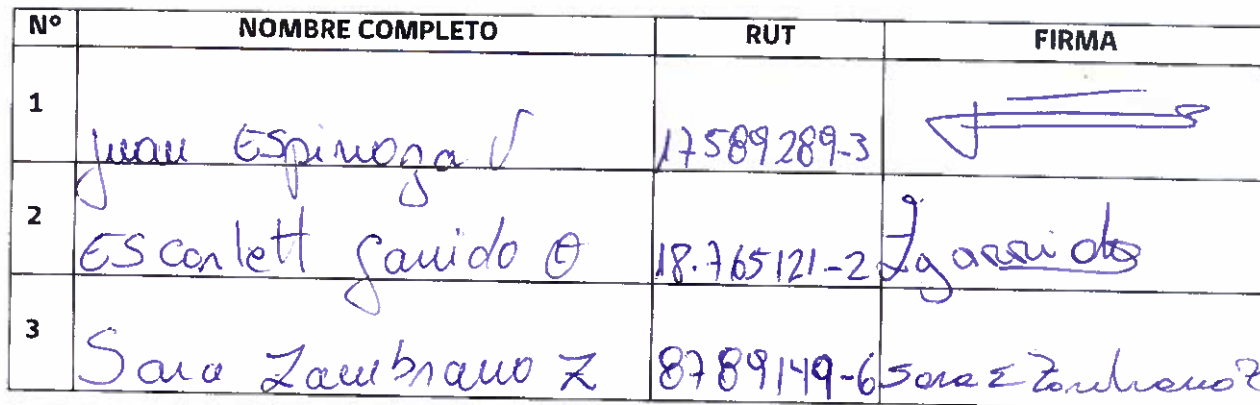 Nº NOMBRE COMPLETO RUT FIRMA
1 Juan Espinoza V 17589289-3
2 Escarlett Garrido O 18.765121-2 Garrido
3 Sara Zambrano Z 8789149-6 Sara E Zambrano Z